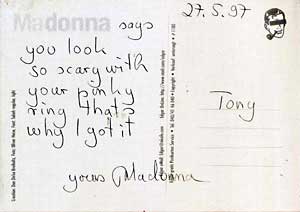 Madonna says
27.5.97
you look
so scary with
your pinky
ring that's
why I got it
Tony
yours Madonna